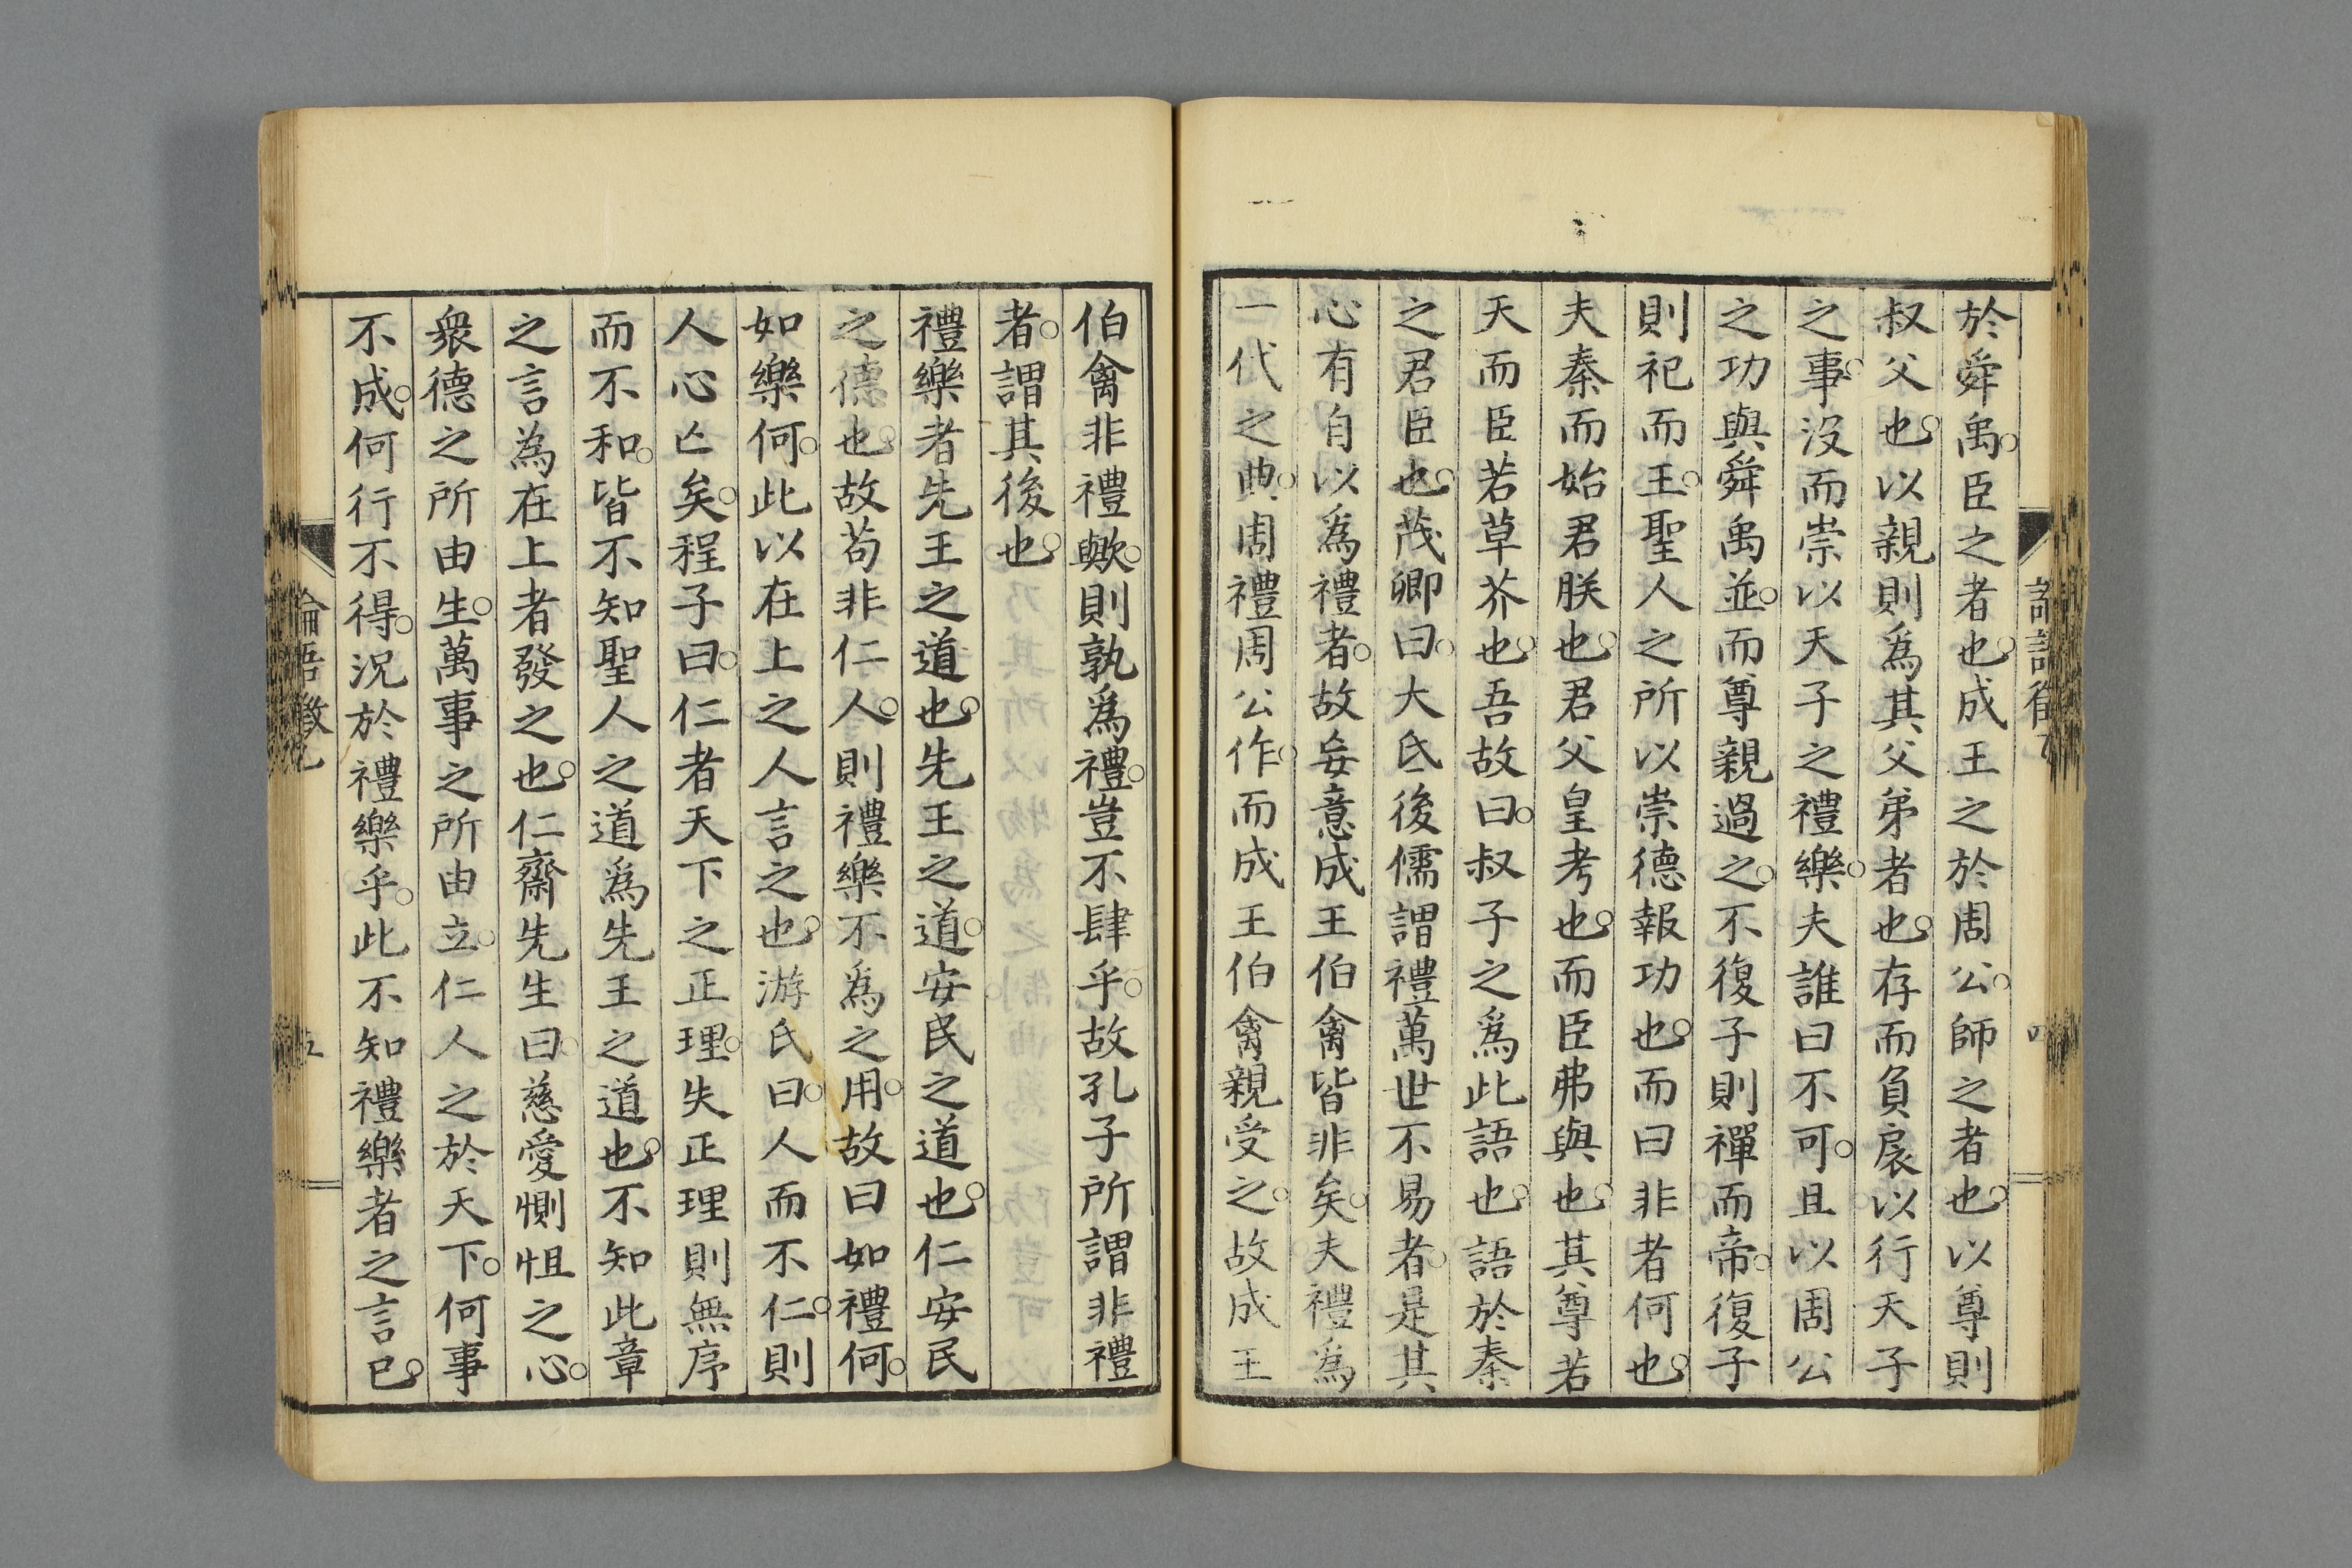 於舜禹。臣之者也。成王之於周公。師之者也。以尊則
叔父也。以親則爲其父弟者也。存而負扆以行天子
之事。沒而崇以天子之禮樂。夫誰曰不可。且以周公
之功與舜禹並。而尊親過之。不復子則禪而帝。復子
則祀而王。聖人之所以崇德報功也。而曰非者何也。
夫秦而始君朕也。君父皇考也。而臣弗與也。其尊若
天而臣若草芥也。吾故曰。叔子之爲此語也。語於秦
之君臣也。茂卿曰。大氐後儒謂禮萬世不易者。是其
心有自以爲禮者。故妄意成王伯禽皆非矣。夫禮爲
一代之典。周禮周公作。而成王伯禽親受之。故成王
伯禽非禮歟。則孰爲禮。豈不肆乎。故孔子所謂非禮
者。謂其後也。
禮樂者先王之道也。先王之道。安民之道也。仁安民
之德也。故苟非仁人。則禮樂不爲之用。故曰如禮何。
如樂何。此以在上之人言之也。游氏曰。人而不仁。則
人心亡矣。程子曰。仁者天下之正理。失正理則無序
而不和。皆不知聖人之道爲先王之道也。不知此章
之言為在上者發之也。仁齋先生曰。慈愛惻怛之心。
衆德之所由生。萬事之所由立。仁人之於天下。何事
不成。何行不得。況於禮樂乎。此不知禮樂者之言已。
論語徵乙
五